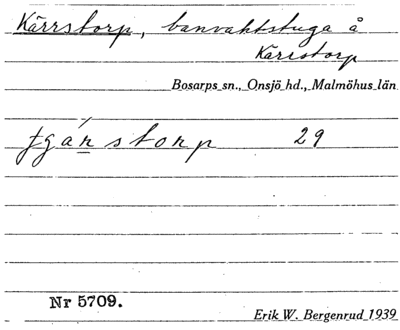 Kärrstorp, banvaktstuga å
Kärrstorp
Bosarps sn., Onsjö hd., Malmöhus län
29
Nr 5709.
Erik W. Bergenrud 1939